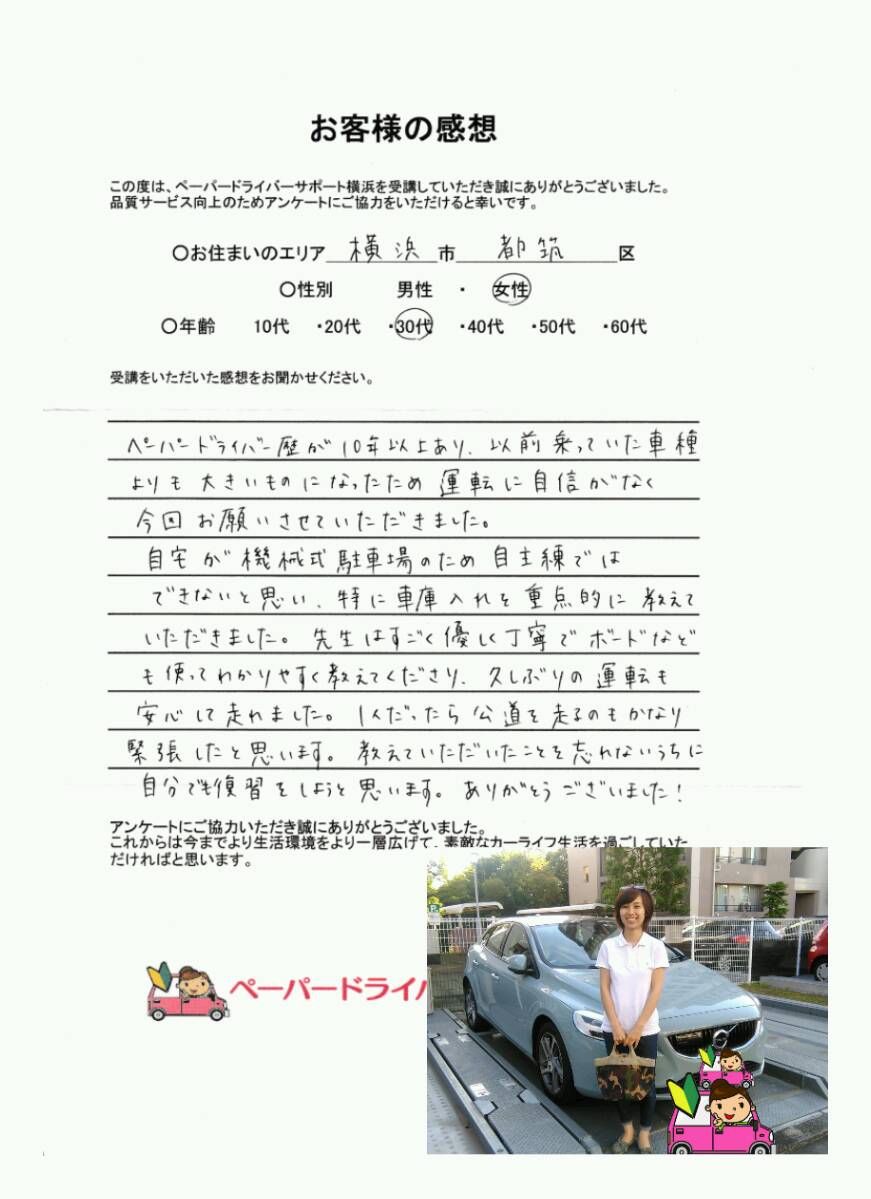 お客様の感想
この度は、ペーパードライバーサポート横浜を受講していただき誠にありがとうございました。
品質サービス向上のためアンケートにご協力をいただけると幸いです。
○お住まいのエリア 横浜 市 都筑 区
○性別 男性 ・ 女性
○年齢 10代 ・20代 ・30代 ・40代 ・50代 ・60代
受講をいただいた感想をお聞かせください。
ペーパードライバー歴が10年以上あり、以前乗っていた車種
よりも大きいものになったため運転に自信がなく
今回お願いさせていただきました。
自宅が機械式駐車場のため自主練では
できないと思い、特に車庫入れを重点的に教えて
いただきました。先生はすごく優しく丁寧でボードなど
も使ってわかりやすく教えてくださり、久しぶりの運転も
安心して走れました。1人だったら公道を走るのもかなり
緊張したと思います。教えていただいたことを忘れないうちに
自分でも復習をしようと思います。ありがとうございました!
アンケートにご協力いただき誠にありがとうございました。
これからは今までより生活環境をより一層広げて、素敵なカーライフ生活を過ごしていた
だければと思います。
ペーパードライバ